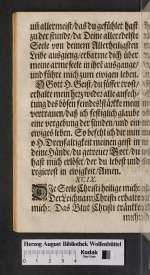 uñ allermeist/das du gefühlet hast
zu der stunde/da Deine alleredelste
Seele von deinem Allerheiligsten
Leibe ausgieng/erbarme dich über
meine arme seele in jhrẽ ausgange/
und führe mich zum ewigen leben.
O Gott H. Geist/du süsser trost/
erhalte mein hertz wider alle anfech-
tung des bösen feindes/stärcke mein
vertrauen/das ich festiglich glaube
eine vergebung der sünden/und ein
ewiges leben. So befehl ich dir nun
o H. Dreyfaltigkeit meinen geist in
deine Hände/du getreuer Gott/du
hast mich erlöset/der du lebest und
regierest in ewigkeit/Amen.
XCIX.
DJe Seele Christi heilige mich:
Der Leichnam Christi erhalte
mich: Das Blut Christi tränke
Herzog August Bibliothek Wolfenbüttel